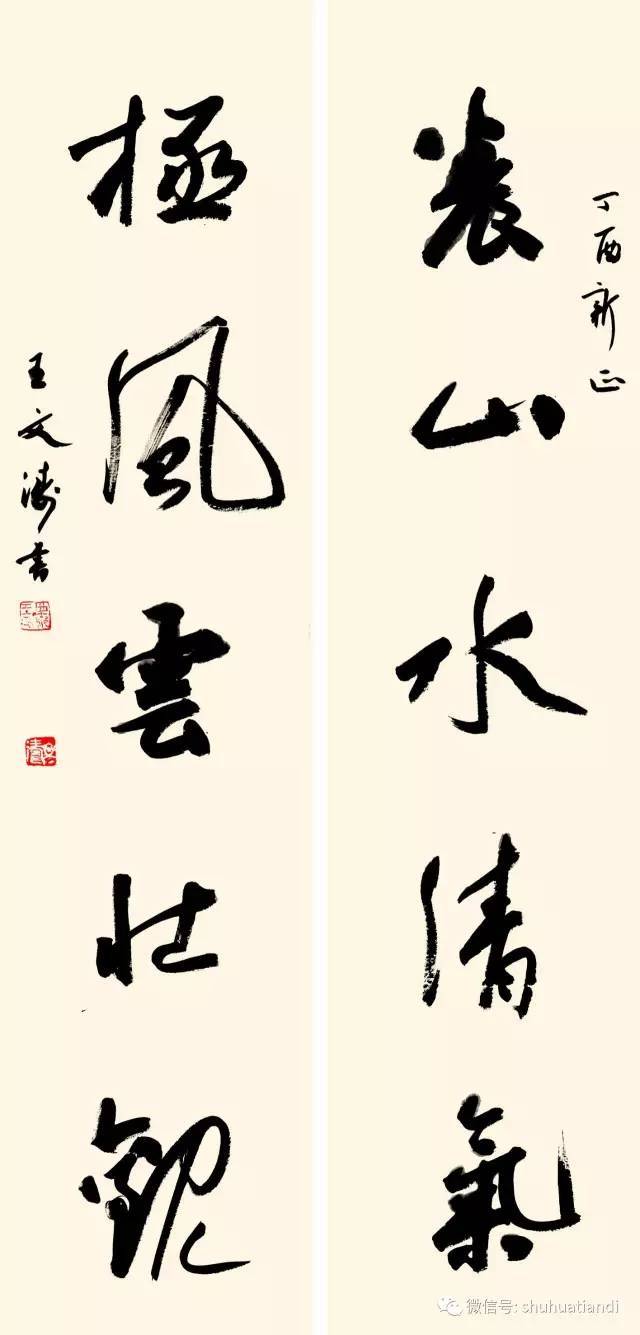 丁酉新正
養山水清氣
極風雲壯觀
王文濤書
微信号: shuhuatiandi